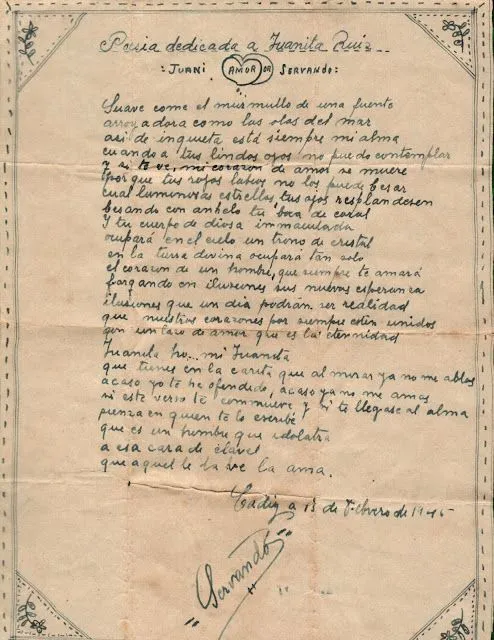 Poesia dedicada a Juanita Ruiz
: JUANI AMOR SERVANDO :
Suave come el murmullo de una fuente
arroyadora como las olas del mar
asi de inquieta está siempre mi alma
cuando a tus lindos ojos no puedo contemplar
y si te ve, mi corazon de amor se muere
porque tus rojos labios no los puede besar
cual luminosas estrellas, tus ojos resplandesen
besando con anhelo tu boca de coral
Y tu cuerpo de diosa immaculada
ocupará en el cielo un trono de cristal
en la tierra divina ocupará tan solo
el corazon de un hombre, que siempre te amará
forgando en ilusiones sus nuevas esperanza
ilusiones que un dia podrán ser realidad
que nuestros corazones por siempre esten unidos
con un lazo de amor que es la eternidad
Juanita ho... mi Juanita
que tienes en la carita que al mirar ya no me ablas
acaso yo te he ofendido, acaso ya no me amas
si este verso te commueve y si te llegase al alma
piensa en quien te lo escribe
que es un hombre que idolatra
a esa cara de clavel
que aquel le la ama.
Cadiz a 13 de Febrero de 1945
Servando